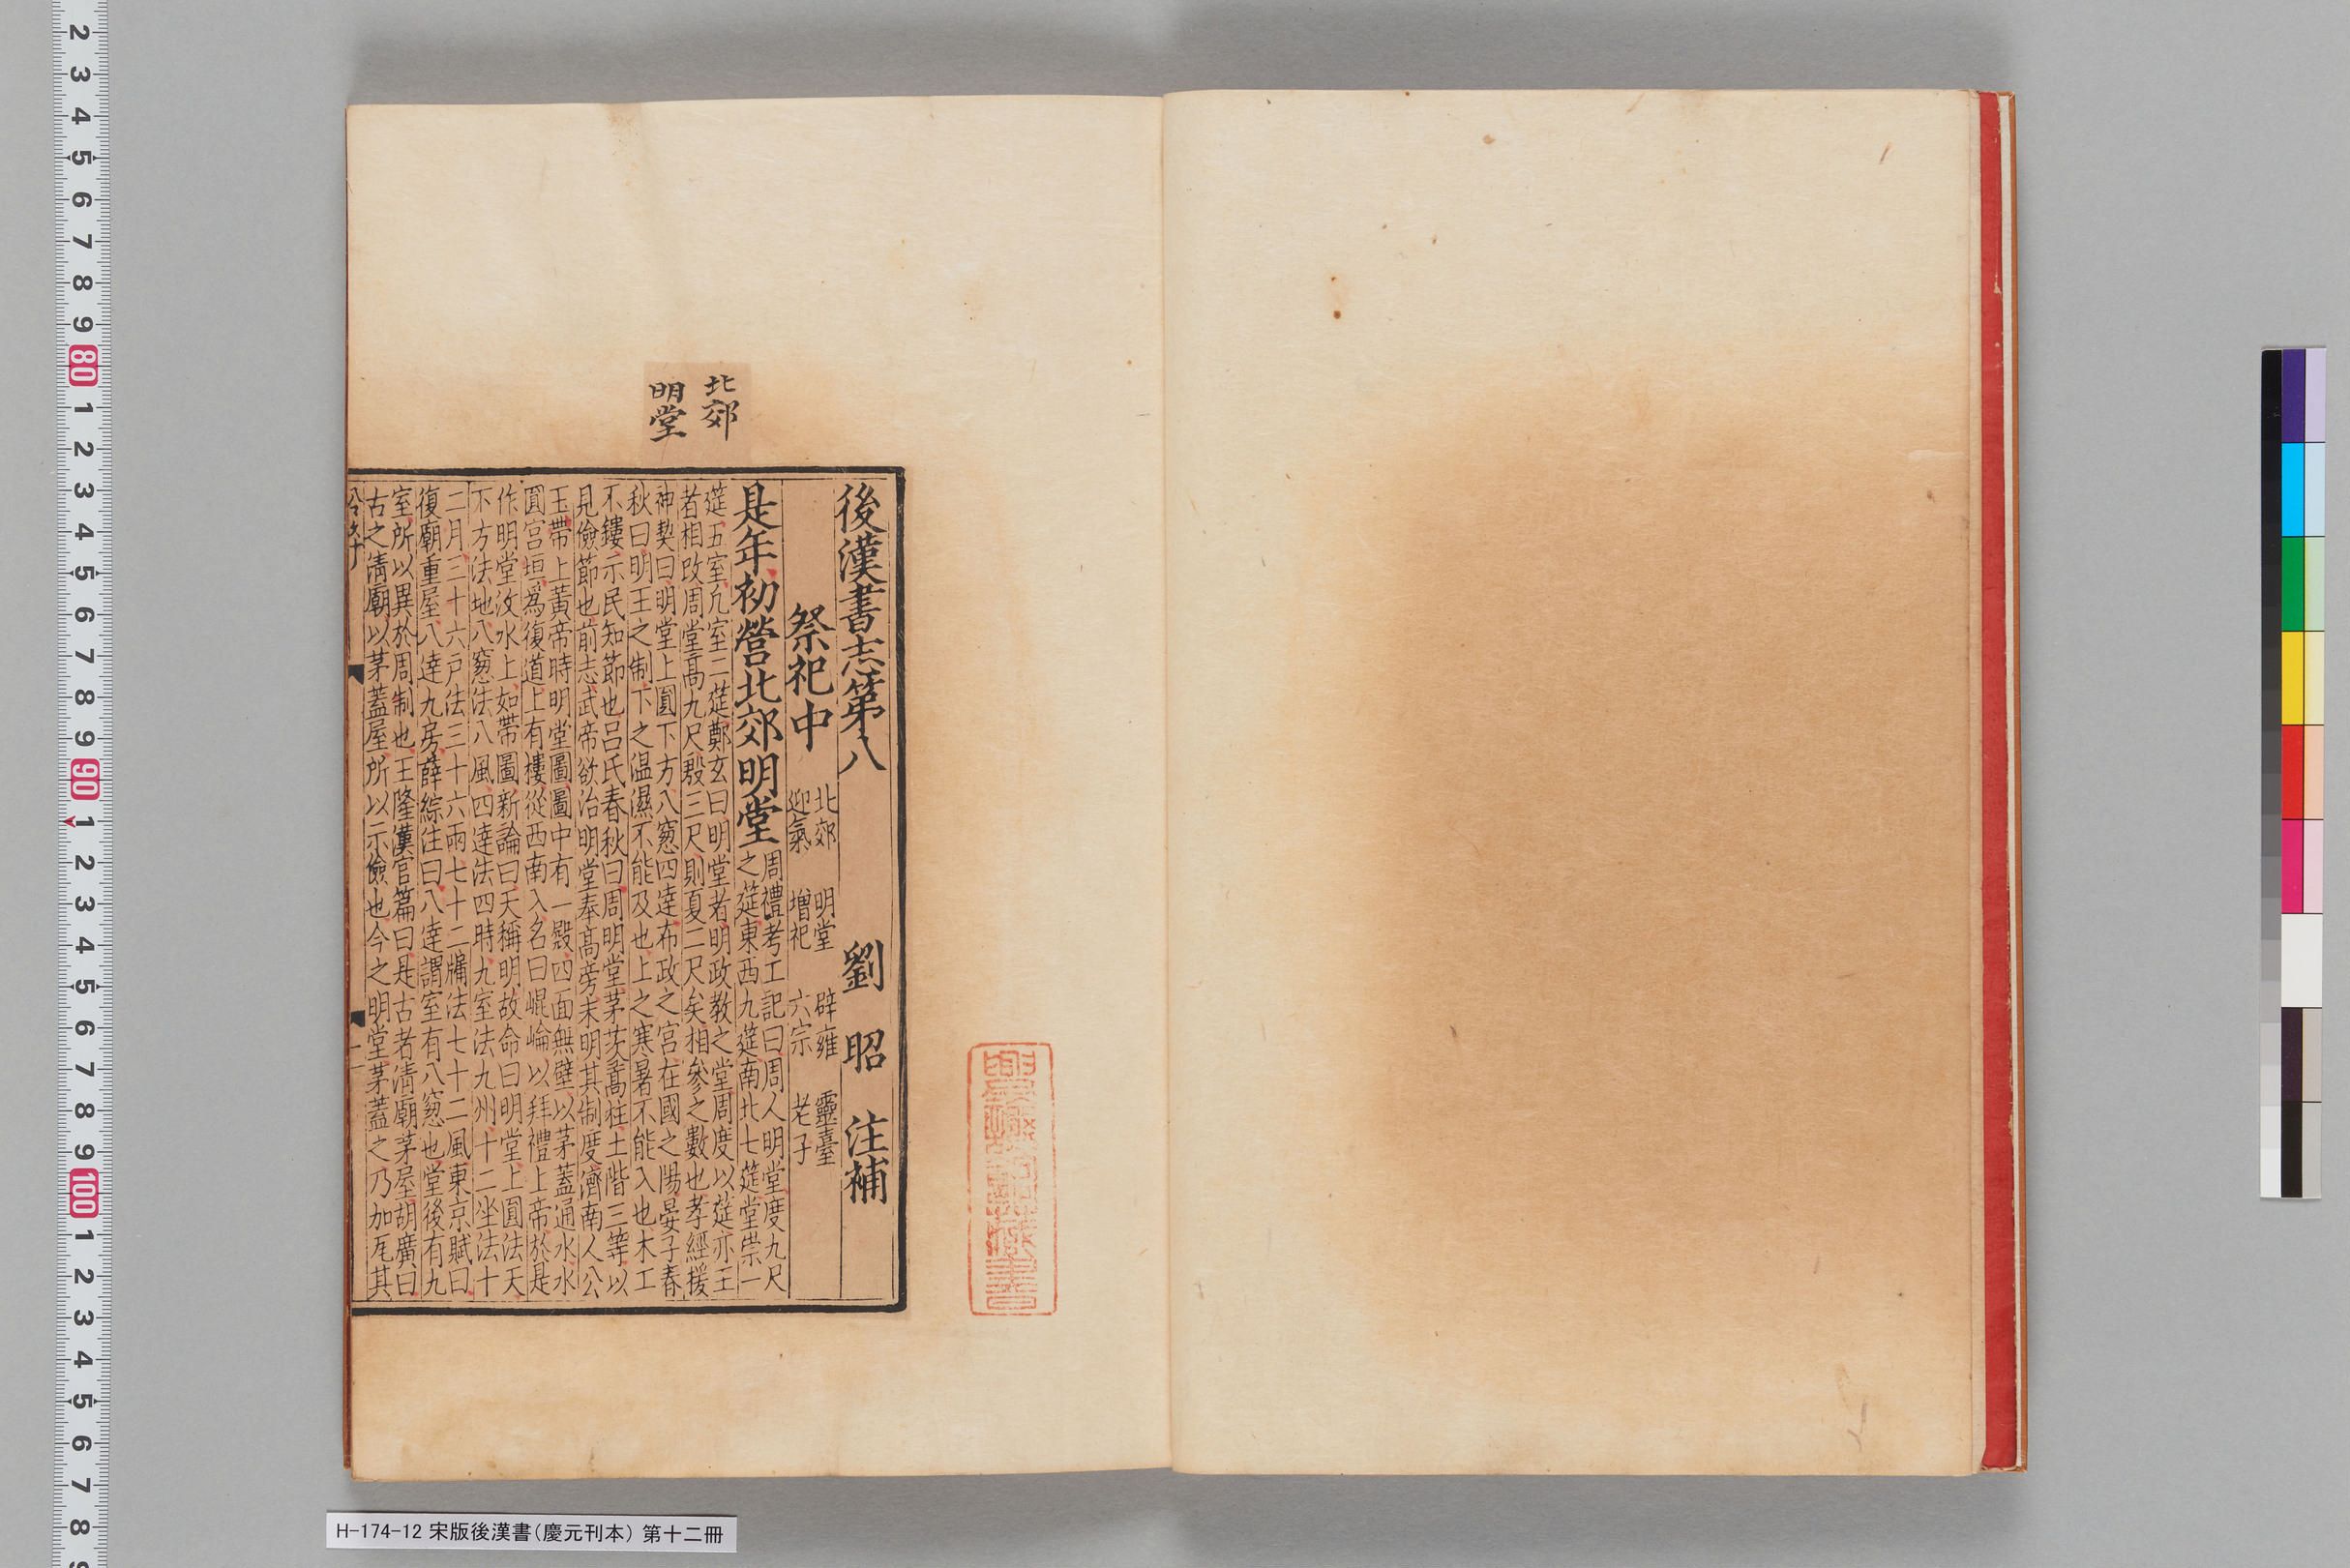 北郊
明堂
後漢書志第八 劉昭 注補
祭祀中 北郊 明堂 辟雍 靈臺
迎氣 增祀 六宗 老子
是年初營北郊明堂 周禮考工記曰周人明堂度九尺
之莚東西九莚南北七莚堂崇一
莚五室凡室二莚鄭玄曰明堂者明政教之堂周度以莚亦王
者相改周堂高九尺殷三尺則夏二尺矣相參之數也孝經援
神契曰明堂上圓下方八窓四達布政之宮在國之陽晏子春
秋曰明王之制下之温濕不能及也上之寒暑不能入也木工
不鏤示民知節也呂氏春秋曰周明堂茅茨蒿柱土階三等以
見儉節也前志武帝欲治明堂奉高旁未明其制度濟南人公
玉帶上黃帝時明堂圖圖中有一殿四面無壁以茅蓋通水水
圓宮垣爲復道上有樓從西南入名曰崐崘以拜禮上帝於是
作明堂汶水上如帶圖新論曰天稱明故命曰明堂上圓法天
下方法地八窓法八風四達法四時九室法九州十二坐法十
二月三十六戶法三十六雨七十二牖法七十二風東京賦曰
復廟重屋八達九房薛綜注曰八達謂室有八窓也堂後有九
室所以異於周制也王隆漢官篇曰是古者清廟茅屋胡廣曰
古之清廟以茅蓋屋所以示儉也今之明堂茅蓋之乃加瓦其
H-174-12 宋版後漢書（慶元刊本） 第十二冊